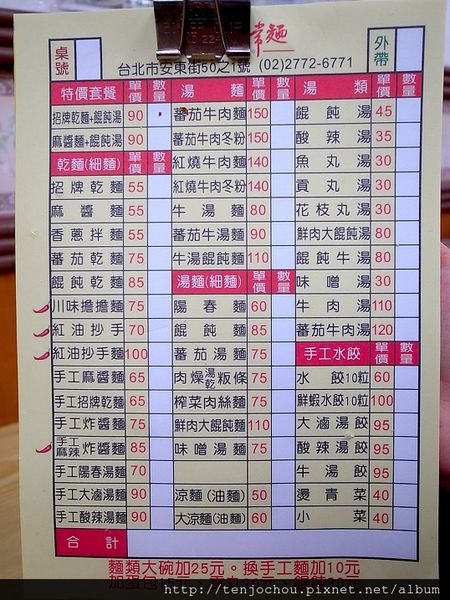 常麵
桌號
外帶
台北市安東街50之1號 (02)2772-6771
特價套餐 單價 數量
招牌乾麵+餛飩湯 90
麻醬麵+餛飩湯 90
乾麵(細麵) 單價 數量
招牌乾麵 55
麻醬麵 55
香蔥拌麵 55
蕃茄乾麵 75
餛飩乾麵 85
川味擔擔麵 75
紅油抄手 70
紅油抄手麵 100
手工麻醬麵 65
手工招牌乾麵 65
手工炸醬麵 75
手工麻辣炸醬麵 85
手工陽春湯麵 70
手工大滷湯麵 90
手工酸辣湯麵 90
湯麵 單價 數量
蕃茄牛肉麵 150
蕃茄牛肉冬粉 150
紅燒牛肉麵 140
紅燒牛肉冬粉 140
牛湯麵 80
蕃茄牛湯麵 90
牛湯餛飩麵 110
湯麵(細麵) 單價 數量
陽春麵 60
餛飩麵 85
蕃茄湯麵 75
肉燥湯乾粄條 75
榨菜肉絲麵 75
鮮肉大餛飩麵 110
味噌湯麵 75
涼麵(油麵) 50
大涼麵(油麵) 60
湯類 單價 數量
餛飩湯 45
酸辣湯 35
魚丸湯 30
貢丸湯 30
花枝丸湯 30
鮮肉大餛飩湯 80
餛飩牛湯 80
味噌湯 30
牛肉湯 110
蕃茄牛肉湯 120
手工水餃 單價 數量
水餃10粒 60
鮮蝦水餃10粒 100
大滷湯餃 95
酸辣湯餃 95
牛湯餃 95
燙青菜 40
小菜 40
合計
麵類大碗加25元。換手工麵加10元
http://tenjochou.pixnet.net/album